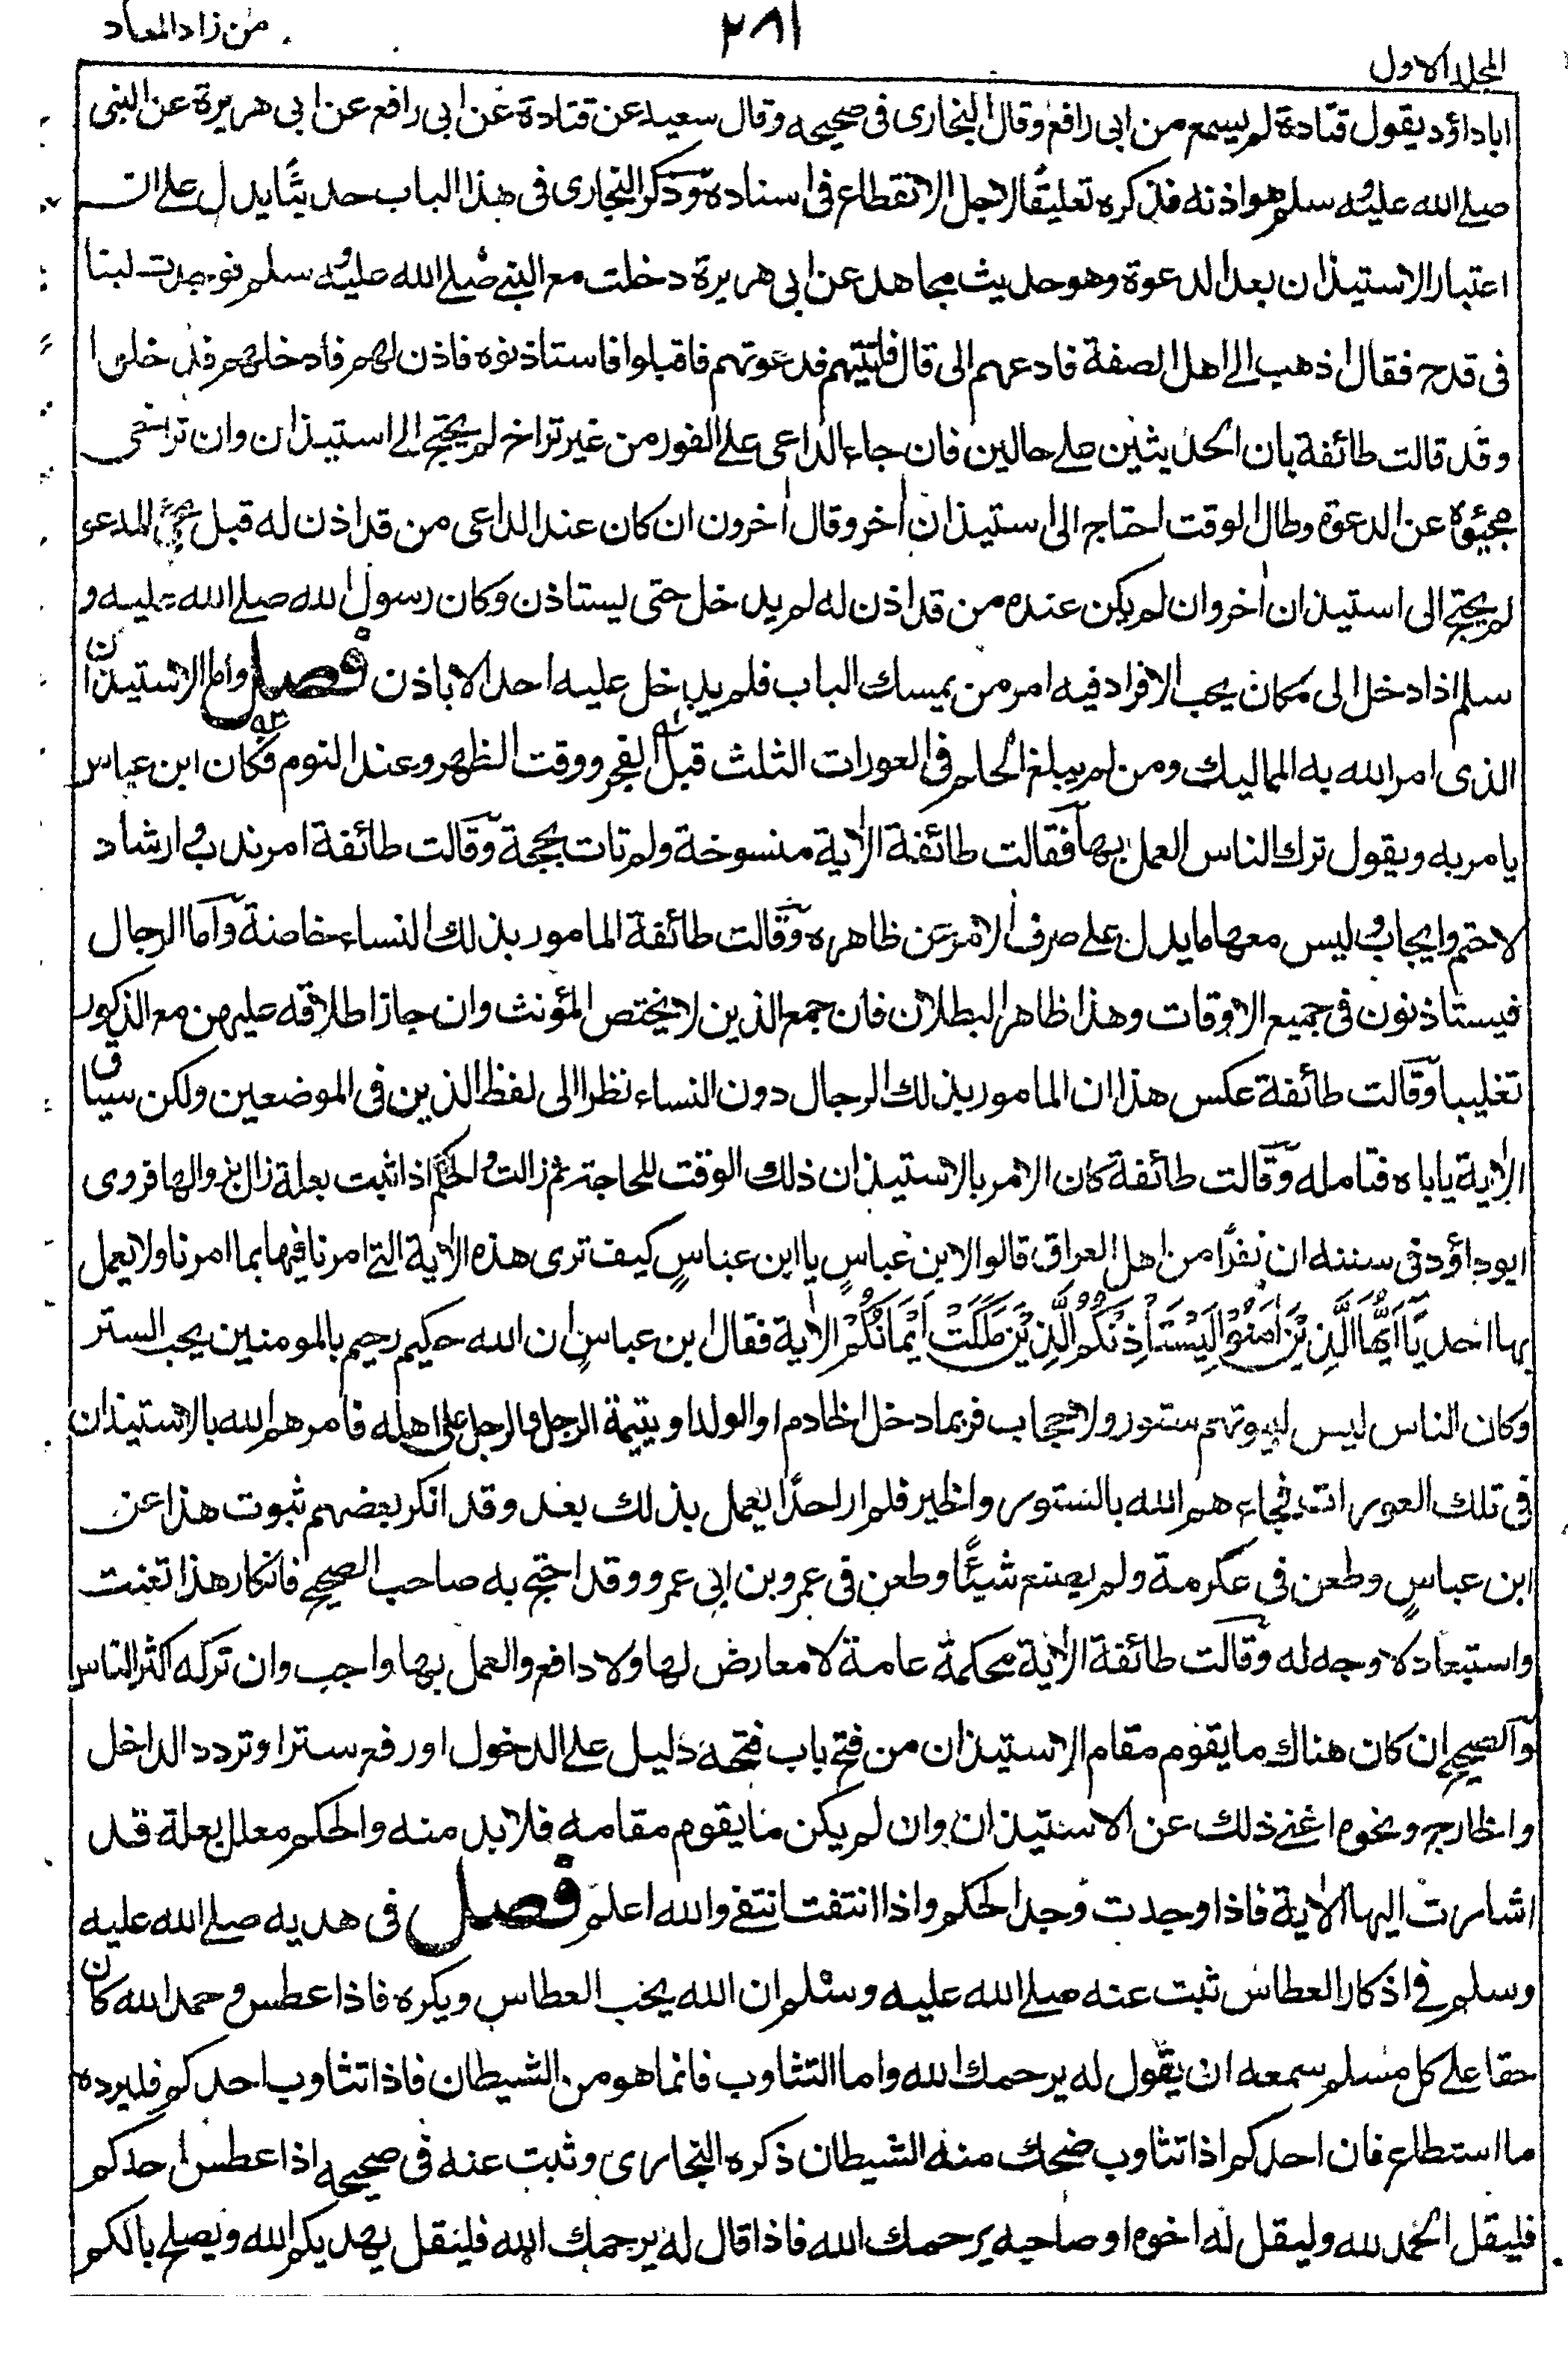 من زاد المعاد
٢٨١
المجلد الاول
اباداؤد يقول قتادة لم يسمع من ابى رافع وقال البخارى فى صحيحه وقال سعيد عن قتادة عن ابى رافع عن ابى هريرة عن النبى
صلے الله عليه سلم هو اذنه فذكره تعليقًا لاجل الانقطاع فى اسناده وذكر البخارى فى هذا الباب حديثًا يدل على ان
اعتبار الاستيذان بعد الدعوة وهو حديث مجاهد عن ابى هريرة دخلت مع النبے صلے الله عليه سلم فوجدت لبنا
فى قدح فقال اذهب الے اهل الصفة فادعهم الى قال فاتيتهم فدعوتهم فاقبلوا فاستاذنوه فاذن لهم فادخلهم فدخلوا
وقد قالت طائفة بان الحديثين على حالين فان جاء الداعى على الفور من غير تراخ لم يحتج الے استيذان وان تراخى
مجيئوه عن الدعوة وطال الوقت احتاج الى استيذان أخر وقال أخرون ان كان عند الداعى من قد اذن له قبل مجئ المدعو
لم يحتج الى استيذان أخر وان لم يكن عنده من قد اذن له لم يدخل حتى يستاذن وكان رسول الله صلے الله عليه و
سلم اذا دخل الى مكان يحب الافراد فيه امر من يمسك الباب فلم يدخل عليه احد الا باذن فصل واما الاستيذان
الذى امر الله به المماليك ومن لم يبلغ الحلم فى العورات الثلث قبل الفجر ووقت الظهر وعند النوم فكان ابن عباس
يامر به ويقول ترك الناس العمل بها فقالت طائفة الأية منسوخة ولم تات بحجة وقالت طائفة امر ندب وارشاد
لا حتم وايجاب وليس معها ما يدل على صرف الامر عن ظاهره وقالت طائفة المامور بذلك النساء خاصة واما الرجال
فيستاذنون فى جميع الاوقات وهذا ظاهر البطلان فان جمع الذين لا يختص المؤنث وان جاز اطلاقه عليهن مع الذكور
تغليبا وقالت طائفة عكس هذا ان المامور بذلك الرجال دون النساء نظرا الى لفظ الذين فى الموضعين ولكن سياق
الأية ياباه فتامله وقالت طائفة كان الامر بالاستيذان ذلك الوقت للحاجة ثم زالت والحكم اذا ثبت بعلة زال بزوالها فروى
ابوداؤد فى سننه ان نفرًا من اهل العراق قالوا لابن عباسٍ يا ابن عباسٍ كيف ترى هذه الأية التے امرنا فيها بما امرنا ولا يعمل
بها احد يَا اَيُّهَا الَّذِيْنَ اٰمَنُوْا لِيَسْتَاْذِنْكُمُ الَّذِيْنَ مَلَكَتْ اَيْمَانُكُمْ الأية فقال ابن عباسٍ ان الله حكيم رحيم بالمومنين يحب الستر
وكان الناس ليس لبيوتهم ستور ولا حجاب فربما دخل الخادم او الولد او يتيمة الرجل والرجل على اهله فامرهم الله بالاستيذان
فى تلك العورات فجاءهم الله بالستور والخير فلم ار احدًا يعمل بذلك بعد وقد انكر بعضهم ثبوت هذا عن
ابن عباسٍ وطعن فى عكرمة ولم يصنع شيئًا وطعن فى عمرو بن ابى عمرو وقد احتج به صاحب الصحيح فانكار هذا تعنت
واستبعاد لا وجه له وقالت طائفة الأية محكمة عامة لا معارض لها ولا دافع والعمل بها واجب وان تركه اكثر الناس
والصحيح ان كان هناك ما يقوم مقام الاستيذان من فتح باب فتحه دليل على الدخول او رفع ستر او تردد الداخل
والخارج ونحوه اغنے ذلك عن الاستيذان وان لم يكن ما يقوم مقامه فلا بد منه والحكم معلل بعلة قد
اشارت اليها الأية فاذا وجدت وجد الحكم واذا انتفت انتفے والله اعلم فصل فى هديه صلے الله عليه
وسلم فے اذكار العطاس ثبت عنه صلے الله عليه وسلم ان الله يحب العطاس ويكره فاذا عطس وحمد الله كان
حقا على كل مسلم سمعه ان يقول له يرحمك الله واما التثاوب فانما هو من الشيطان فاذا تثاوب احدكم فليرده
ما استطاع فان احدكم اذا تثاوب ضحك منه الشيطان ذكره البخارى وثبت عنه فى صحيحه اذا عطس احدكم
فليقل الحمد لله وليقل له اخوه او صاحبه يرحمك الله فاذا قال له يرحمك الله فليقل يهديكم الله ويصلح بالكم